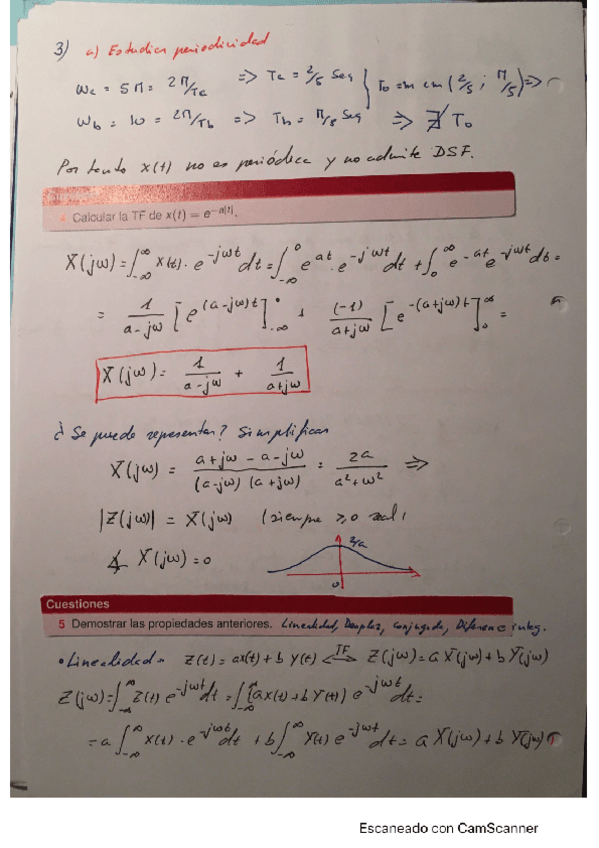 3) a) Estudiar periodicidad
ωa = 5π = 2π/Ta => Ta = 2/5 Seg } T0 = m cm (2/5 ; π/5) =>
ωb = 10 = 2π/Tb => Tb = π/5 Seg => ∄ T0
Por tanto x(t) no es periódica y no admite DSF.
4 Calcular la TF de x(t) = e^{-a|t|}.
X(jω) = ∫_{-∞}^{∞} x(t) · e^{-jωt} dt = ∫_{-∞}^{0} e^{at} · e^{-jωt} dt + ∫_{0}^{∞} e^{-at} e^{-jωt} dt =
= 1/(a-jω) [e^{(a-jω)t}]_{-∞}^{0} + (-1)/(a+jω) [e^{-(a+jω)t}]_{0}^{∞} =
X(jω) = 1/(a-jω) + 1/(a+jω)
¿ Se puede representar? Simplificar
X(jω) = (a+jω - a-jω)/((a-jω) (a+jω)) = 2a/(a²+ω²) =>
|Z(jω)| = X(jω) (siempre ≥0 real)
∡ X(jω) = 0
2/a
0
Cuestiones
5 Demostrar las propiedades anteriores. Linealidad, Desplaz, Conjugada, Diferenc e integ.
• Linealidad → z(t) = ax(t) + b y(t) <=TF=> Z(jω) = a X(jω) + b Y(jω)
Z(jω) = ∫_{-∞}^{∞} z(t) e^{-jωt} dt = ∫_{-∞}^{∞} [ax(t) + b y(t)] e^{-jωt} dt =
= a ∫_{-∞}^{∞} x(t) · e^{-jωt} dt + b ∫_{-∞}^{∞} y(t) e^{-jωt} dt = a X(jω) + b Y(jω)
Escaneado con CamScanner